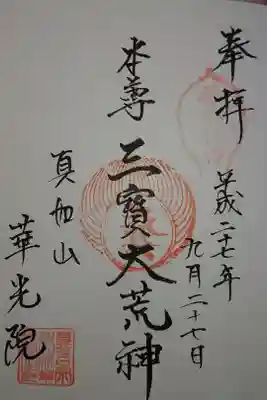 奉拝
平成二十七年
九月二十七日
本尊
三寶大荒神
真如山
華光院